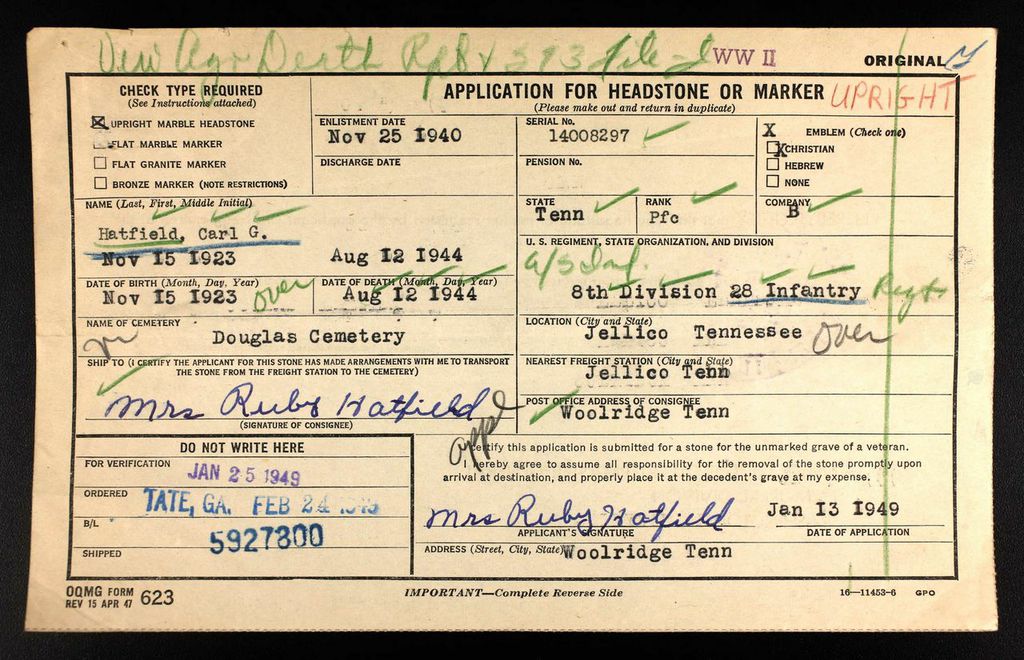 View Agr Death Rpt & 393 file-J WW II ORIGINAL
CHECK TYPE REQUIRED
(See Instructions attached)
UPRIGHT MARBLE HEADSTONE
FLAT MARBLE MARKER
FLAT GRANITE MARKER
BRONZE MARKER (NOTE RESTRICTIONS)
APPLICATION FOR HEADSTONE OR MARKER UPRIGHT
(Please make out and return in duplicate)
ENLISTMENT DATE
Nov 25 1940
DISCHARGE DATE
SERIAL No.
14008297
PENSION No.
X EMBLEM (Check one)
X CHRISTIAN
HEBREW
NONE
NAME (Last, First, Middle Initial)
Hatfield, Carl G.
Nov 15 1923 Aug 12 1944
STATE
Tenn
RANK
Pfc
COMPANY
B
U. S. REGIMENT, STATE ORGANIZATION, AND DIVISION
8th Division 28 Infantry Regt.
DATE OF BIRTH (Month, Day, Year)
Nov 15 1923 over
DATE OF DEATH (Month, Day, Year)
Aug 12 1944
NAME OF CEMETERY
Douglas Cemetery
LOCATION (City and State)
Jellico Tennessee over
SHIP TO (I CERTIFY THE APPLICANT FOR THIS STONE HAS MADE ARRANGEMENTS WITH ME TO TRANSPORT
THE STONE FROM THE FREIGHT STATION TO THE CEMETERY)
Mrs Ruby Hatfield
(SIGNATURE OF CONSIGNEE)
NEAREST FREIGHT STATION (City and State)
Jellico Tenn
POST OFFICE ADDRESS OF CONSIGNEE
Woolridge Tenn
DO NOT WRITE HERE
FOR VERIFICATION JAN 25 1949
ORDERED TATE, GA. FEB 24 1949
B/L 5927800
SHIPPED
appl
I certify this application is submitted for a stone for the unmarked grave of a veteran.
I hereby agree to assume all responsibility for the removal of the stone promptly upon
arrival at destination, and properly place it at the decedent's grave at my expense.
Mrs Ruby Hatfield Jan 13 1949
APPLICANT'S SIGNATURE DATE OF APPLICATION
ADDRESS (Street, City, State) Woolridge Tenn
OQMG FORM
REV 15 APR 47 623
IMPORTANT—Complete Reverse Side
16—11453-6 GPO